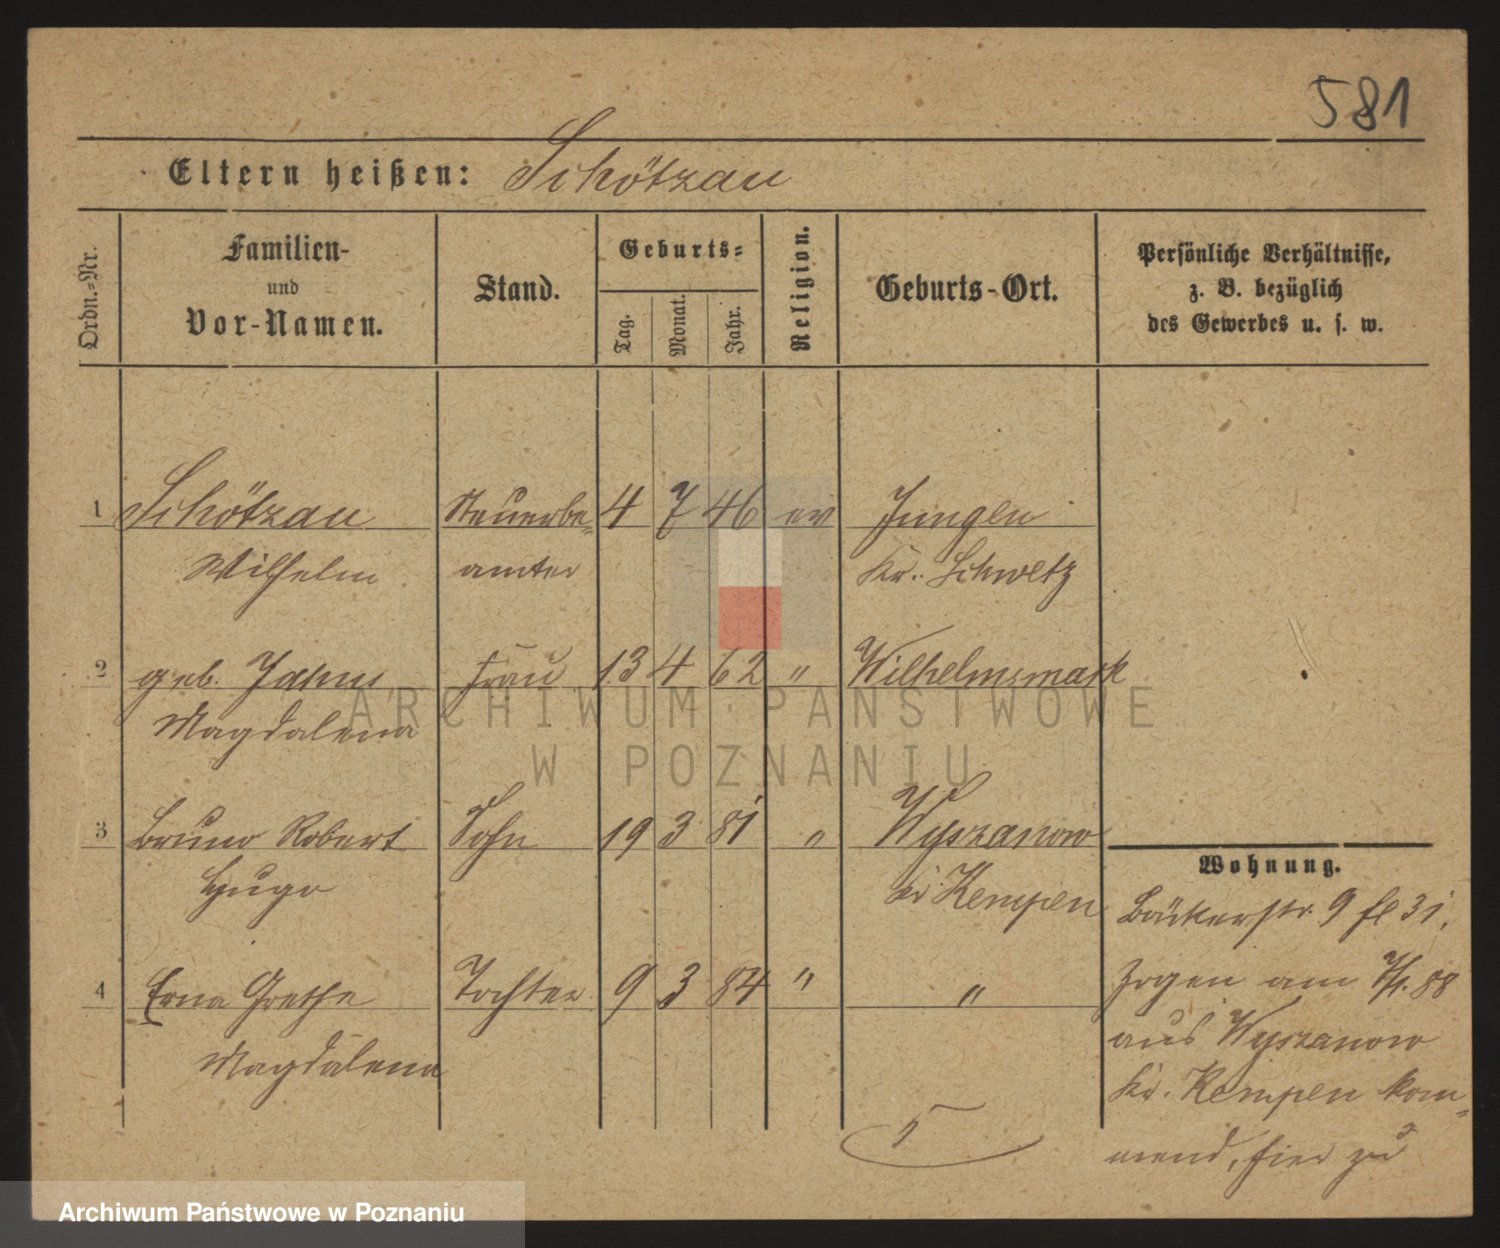 581
Eltern heißen: Schötzau
Ordn.-Nr.
Familien-
und
Vor-Namen.
Stand.
Geburts-
Tag.
Monat.
Jahr.
Religion.
Geburts-Ort.
Persönliche Verhältnisse,
z. B. bezüglich
des Gewerbes u. s. w.
1 Schötzau Steuerbe= 4 7 46 ev Jungen
Wilhelm amter Kr. Schwetz
2 geb. Jahns Frau 13 4 62 " Wilhelmsmark
Magdalena
ARCHIWUM PAŃSTWOWE
W POZNANIU
3 Bruno Robert Sohn 19 3 81 " Wyszanow
Hugo Kr Kempen
4 Erna Grethe Tochter 9 3 84 " "
Magdalena
Wohnung.
Bäckerstr. 9 fl 31.
Zogen am 4/1. 88
aus Wyszanow
Kr. Kempen kom=
mend, hier zu
Archiwum Państwowe w Poznaniu